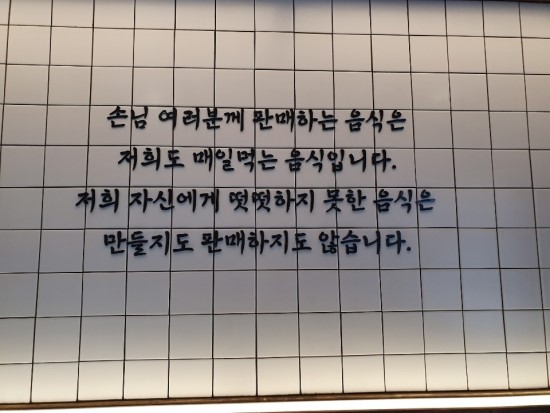 손님 여러분께 판매하는 음식은
저희도 매일먹는 음식입니다.
저희 자신에게 떳떳하지 못한 음식은
만들지도 판매하지도 않습니다.